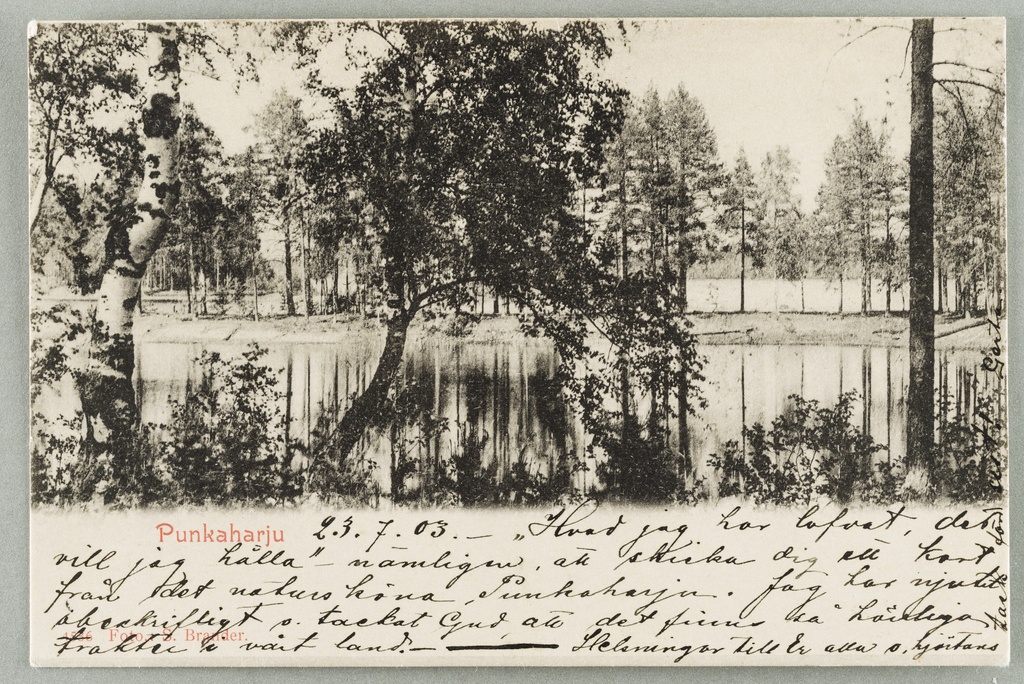 Punkaharju 23.7.03. – „Hvad jag har lofvat, det
vill jag hålla" – nämligen, att skicka dig ett kort
från det natursköna Punkaharju. Jag har njutit
obeskrifligt o. tackat Gud, att det finns så härliga
4546 Foto.: S. Brander.
trakter i vårt land. – Helsningar till Er alla o. hjärtans
tack för